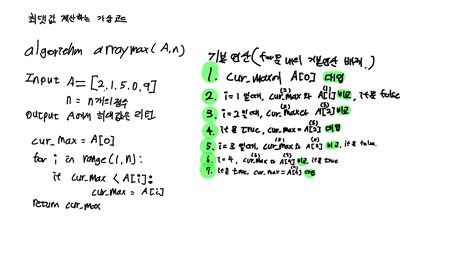 최댓값 계산하는 가상코드
algorithm arraymax(A,n)
Input A=[2,1,5,0,9]
n = n개의 정수
Output A에서 최대값을 리턴
cur_max = A[0]
for i in range(1,n):
if cur_max < A[i]:
cur_max = A[i]
return cur_max
기본연산(for문 내의 기본연산 배제.)
1. cur_max에 A[0] 대입
2. i=1 일때, cur_max와 A[1] 비교, if문 false
(2) (1)
3. i=2 일때, cur_max와 A[2] 비교
(2) (5)
4. if문 true, cur_max = A[2] 대입
(5)
5. i=3 일때, cur_max와 A[3] 비교, if문 false.
(5) (0)
6. i=4, cur_max와 A[4] 비교, if문 true
(5) (9)
7. if문 true, cur_max = A[4] 대입
(9)